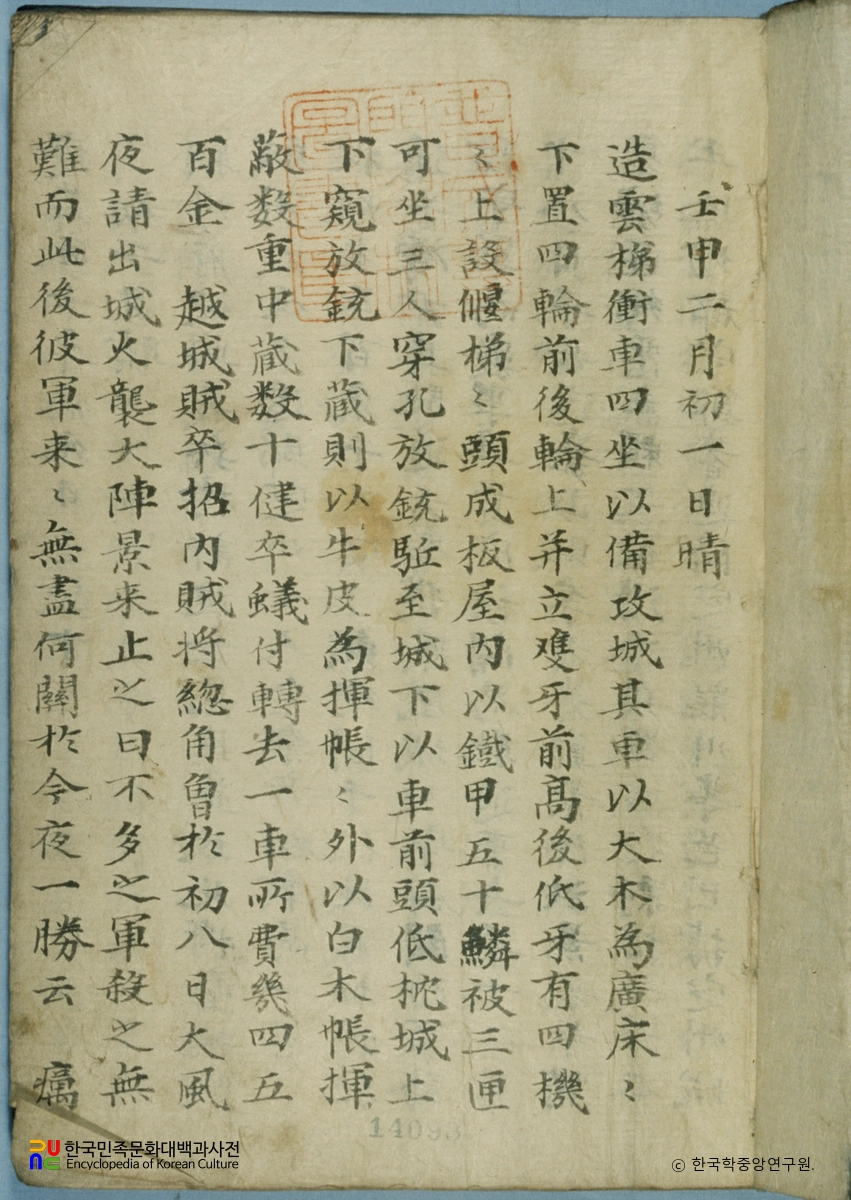 壬申二月初一日晴
造雲梯衝車四坐以備攻城其車以大木為廣床〻
下置四輪前後輪上并立雙牙前高後低牙有四機
〻上設偃梯〻頭成板屋內以鐵甲五十鱗被三匣
可坐三人穿孔放銃駈至城下以車前頭低枕城上
下窺放銃下藏則以牛皮為揮帳〻外以白木帳揮
蔽数重中藏数十健卒蟻付轉去一車所費幾四五
百金 越城賊卒招內賊將総角魯於初八日大風
夜請出城火襲大陣景来止之曰不多之軍殺之無
難而此後彼軍来〻無盡何關於今夜一勝云 癘
14093
한국민족문화대백과사전
Encyclopedia of Korean Culture
© 한국학중앙연구원.